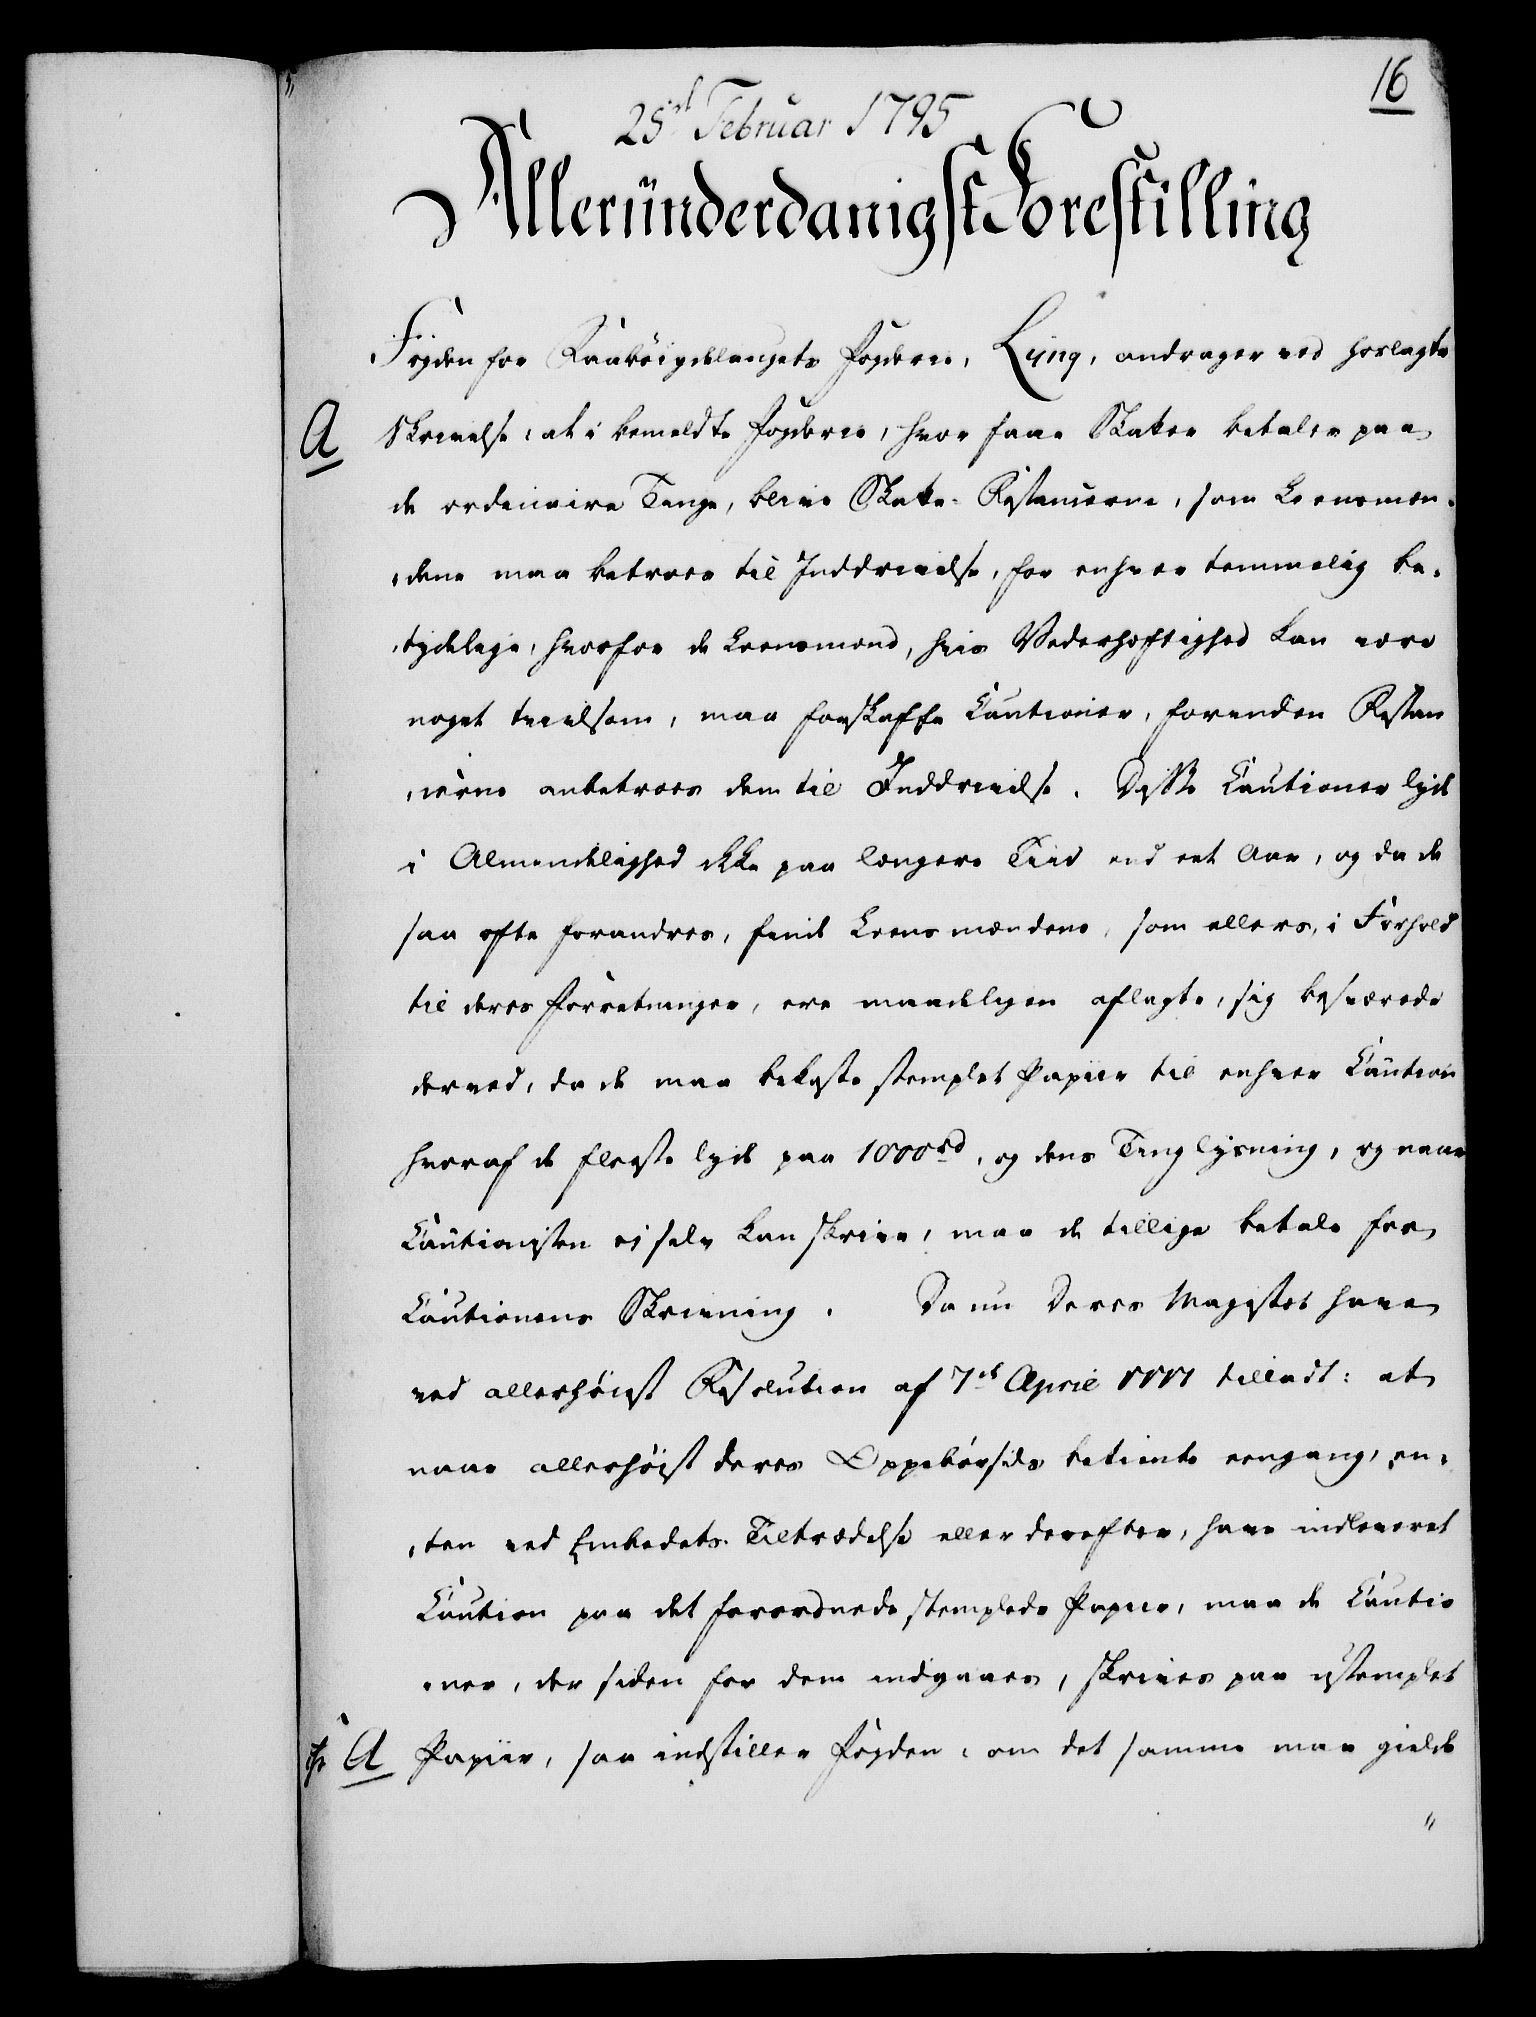 16
25de Februar 1795
Alleründerdanigst Forestilling
Fogden for Raabøigdelaugets Fogderie, Lÿng, andrager ved hoslagte
A Skrivelse: at i bemeldte Fogderie, hvor faae Skatter betales paa
de ordinaire Tinge, blive Skatte-Restancerne, som Lensmæn-
dene maa betroes til Inddrivelse, for enhver temmelig be-
tydelige, hvorfor de Lensmænd, hvis Vederhæftighed kan være
noget tvivlsom, maa forskaffe Cautioner, forinden Restan
cerne anbetroes dem til Inddrivelse. Disse Cautioner lyde
i Almindelighed ikke paa længere Tiid end eet Aar, og da de
saa ofte forandres, finde Lensmændene, som ellers, i Forhold
til deres Forretninger, ere maadeligen aflagte, sig besværede
derved, da de maa bekoste stemplet Papiir til enhver Caution
hvoraf de fleeste lyde paa 1000rd, og dens Tinglysning, og naar
Cautionisten ej selv kan skrive, maa de tillige betale for
Cautionens Skrivning. Da nu Deres Majestet have
ved allerhøiest Resolution af 7de April tilladt: at
naar allerhøist deres Oppebørsels betiente eengang, en-
ten ved Embedets Tiltrædelse eller derefter, have indleveret
Caution paa det forordnede stemplede Papiir, maa de Cautio
ner, der siden for dem indgaaes, skrives paa ustemplet
A Papiir, saa indstiller Fogden: om det samme maa gielde